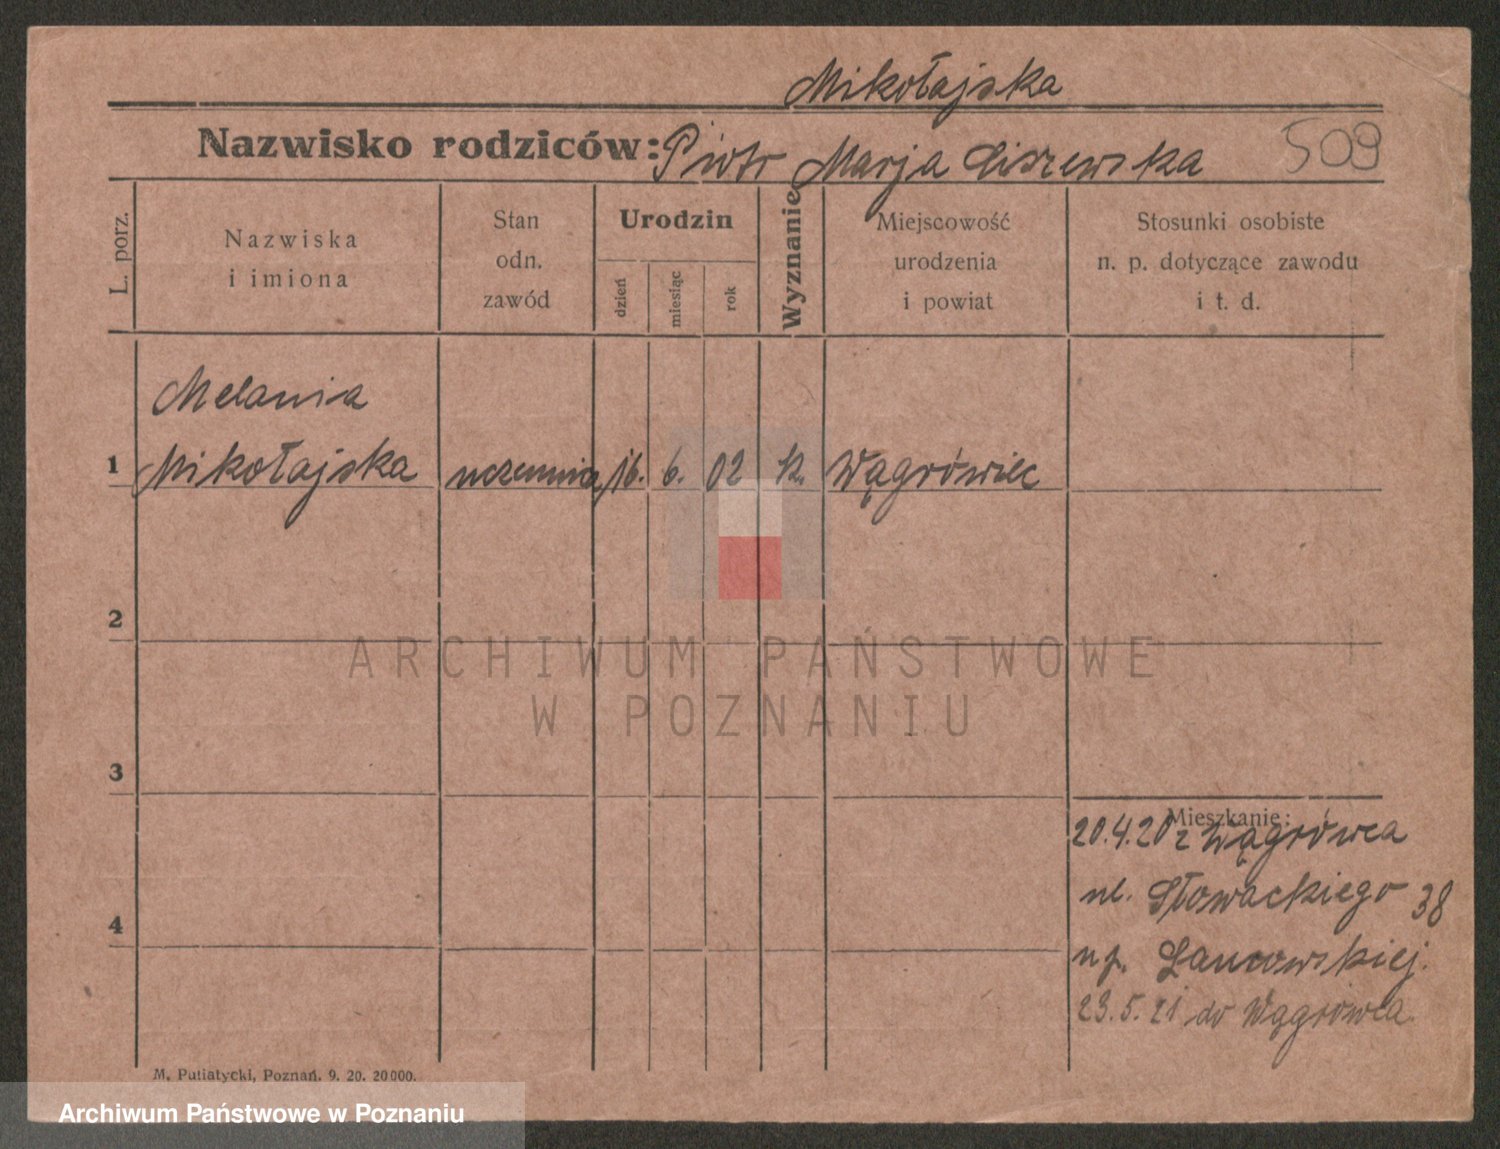 Mikołajska
Nazwisko rodziców: Piotr Marja Liszewska 509
L. porz.
Nazwiska
i imiona
Stan
odn.
zawód
Urodzin
dzień
miesiąc
rok
Wyznanie
Miejscowość
urodzenia
i powiat
Stosunki osobiste
n. p. dotyczące zawodu
i t. d.
Melania
1 Mikołajska uczennica 16. 6. 02 k. Wągrówiec
2
3
4
Mieszkanie:
20.4.20 z Wągrówca
ul. Słowackiego 38
u p.
23.5.21 do Wągrówca.
M. Putiatycki, Poznań. 9. 20. 20000.
ARCHIWUM PAŃSTWOWE
W POZNANIU
Archiwum Państwowe w Poznaniu